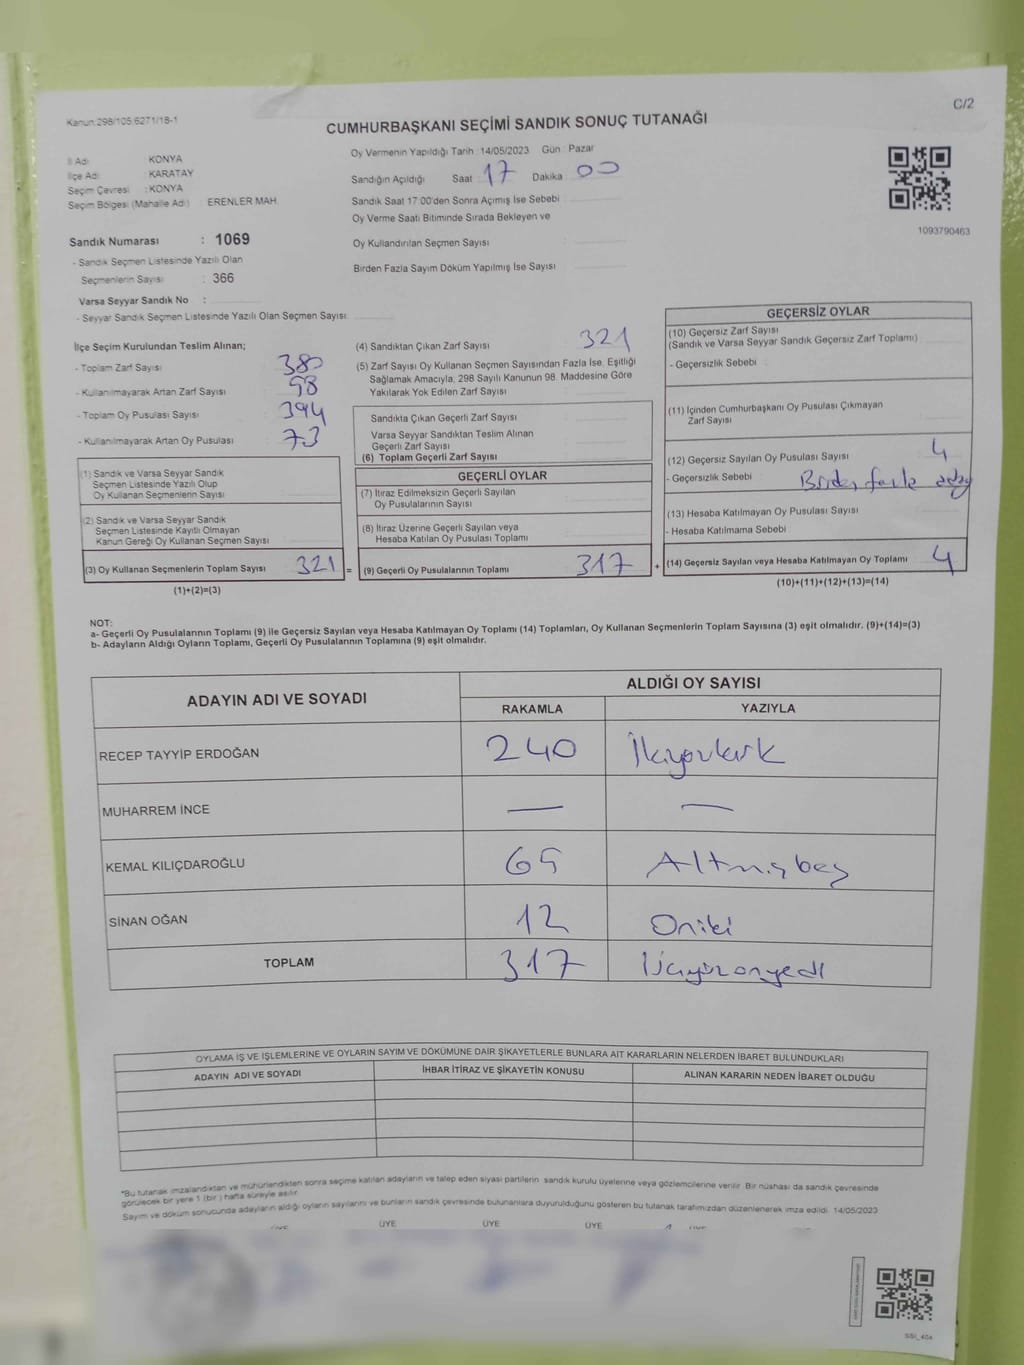 C/2
Kanun:298/105;6271/18-1
CUMHURBAŞKANI SEÇİMİ SANDIK SONUÇ TUTANAĞI
İl Adı KONYA
İlçe Adı KARATAY
Seçim Çevresi :KONYA
Seçim Bölgesi (Mahalle Adı) ERENLER MAH.
Oy Vermenin Yapıldığı Tarih 14/05/2023 Gün : Pazar
Sandığın Açıldığı Saat 17 Dakika 00
Sandık Saat 17:00'den Sonra Açımış İse Sebebi
Oy Verme Saati Bitiminde Sırada Bekleyen ve
Oy Kullandırılan Seçmen Sayısı
Birden Fazla Sayım Döküm Yapılmış İse Sayısı
1093790463
Sandık Numarası : 1069
- Sandık Seçmen Listesinde Yazılı Olan
Seçmenlerin Sayısı : 366
Varsa Seyyar Sandık No :
- Seyyar Sandık Seçmen Listesinde Yazılı Olan Seçmen Sayısı
İlçe Seçim Kurulundan Teslim Alınan;
- Toplam Zarf Sayısı 380
- Kullanılmayarak Artan Zarf Sayısı
- Toplam Oy Pusulası Sayısı 394
- Kullanılmayarak Artan Oy Pusulası 73
(1) Sandık ve Varsa Seyyar Sandık
Seçmen Listesinde Yazılı Olup
Oy Kullanan Seçmenlerin Sayısı
(2) Sandık ve Varsa Seyyar Sandık
Seçmen Listesinde Kayıtlı Olmayan
Kanun Gereği Oy Kullanan Seçmen Sayısı
(3) Oy Kullanan Seçmenlerin Toplam Sayısı 321 =
(1)+(2)=(3)
(4) Sandıktan Çıkan Zarf Sayısı 321
(5) Zarf Sayısı Oy Kullanan Seçmen Sayısından Fazla İse, Eşitliği
Sağlamak Amacıyla, 298 Sayılı Kanunun 98. Maddesine Göre
Yakılarak Yok Edilen Zarf Sayısı
Sandıkta Çıkan Geçerli Zarf Sayısı
Varsa Seyyar Sandıktan Teslim Alınan
Geçerli Zarf Sayısı
(6) Toplam Geçerli Zarf Sayısı
GEÇERLİ OYLAR
(7) İtiraz Edilmeksizin Geçerli Sayılan
Oy Pusulalarının Sayısı
(8) İtiraz Üzerine Geçerli Sayılan veya
Hesaba Katılan Oy Pusulası Toplamı
(9) Geçerli Oy Pusulalarının Toplamı 317 +
GEÇERSİZ OYLAR
(10) Geçersiz Zarf Sayısı
(Sandık ve Varsa Seyyar Sandık Geçersiz Zarf Toplamı)
- Geçersizlik Sebebi
(11) İçinden Cumhurbaşkanı Oy Pusulası Çıkmayan
Zarf Sayısı
(12) Geçersiz Sayılan Oy Pusulası Sayısı 4
- Geçersizlik Sebebi Birden fazla aday
(13) Hesaba Katılmayan Oy Pusulası Sayısı
- Hesaba Katılmama Sebebi
(14) Geçersiz Sayılan veya Hesaba Katılmayan Oy Toplamı 4
(10)+(11)+(12)+(13)=(14)
NOT:
a- Geçerli Oy Pusulalarının Toplamı (9) ile Geçersiz Sayılan veya Hesaba Katılmayan Oy Toplamı (14) Toplamları, Oy Kullanan Seçmenlerin Toplam Sayısına (3) eşit olmalıdır. (9)+(14)=(3)
b- Adayların Aldığı Oyların Toplamı, Geçerli Oy Pusulalarının Toplamına (9) eşit olmalıdır.
ADAYIN ADI VE SOYADI ALDIĞI OY SAYISI
RAKAMLA YAZIYLA
RECEP TAYYİP ERDOĞAN 240 İkiyüzkırk
MUHARREM İNCE — —
KEMAL KILIÇDAROĞLU 65 Altmışbeş
SİNAN OĞAN 12 Oniki
TOPLAM 317 Üçyüzonyedi
OYLAMA İŞ VE İŞLEMLERİNE VE OYLARIN SAYIM VE DÖKÜMÜNE DAİR ŞİKAYETLERLE BUNLARA AİT KARARLARIN NELERDEN İBARET BULUNDUKLARI
ADAYIN ADI VE SOYADI İHBAR İTİRAZ VE ŞİKAYETİN KONUSU ALINAN KARARIN NEDEN İBARET OLDUĞU
*Bu tutanak imzalandıktan ve mühürlendikten sonra seçime katılan adayların ve talep eden siyasi partilerin sandık kurulu üyelerine veya gözlemcilerine verilir. Bir nüshası da sandık çevresinde
görülecek bir yere 1 (bir) hafta süreyle asılır.
Sayım ve döküm sonucunda adayların aldığı oyların sayılarını ve bunların sandık çevresinde bulunanlara duyurulduğunu gösteren bu tutanak tarafımızdan düzenlenerek imza edildi. 14/05/2023
ÜYE ÜYE ÜYE